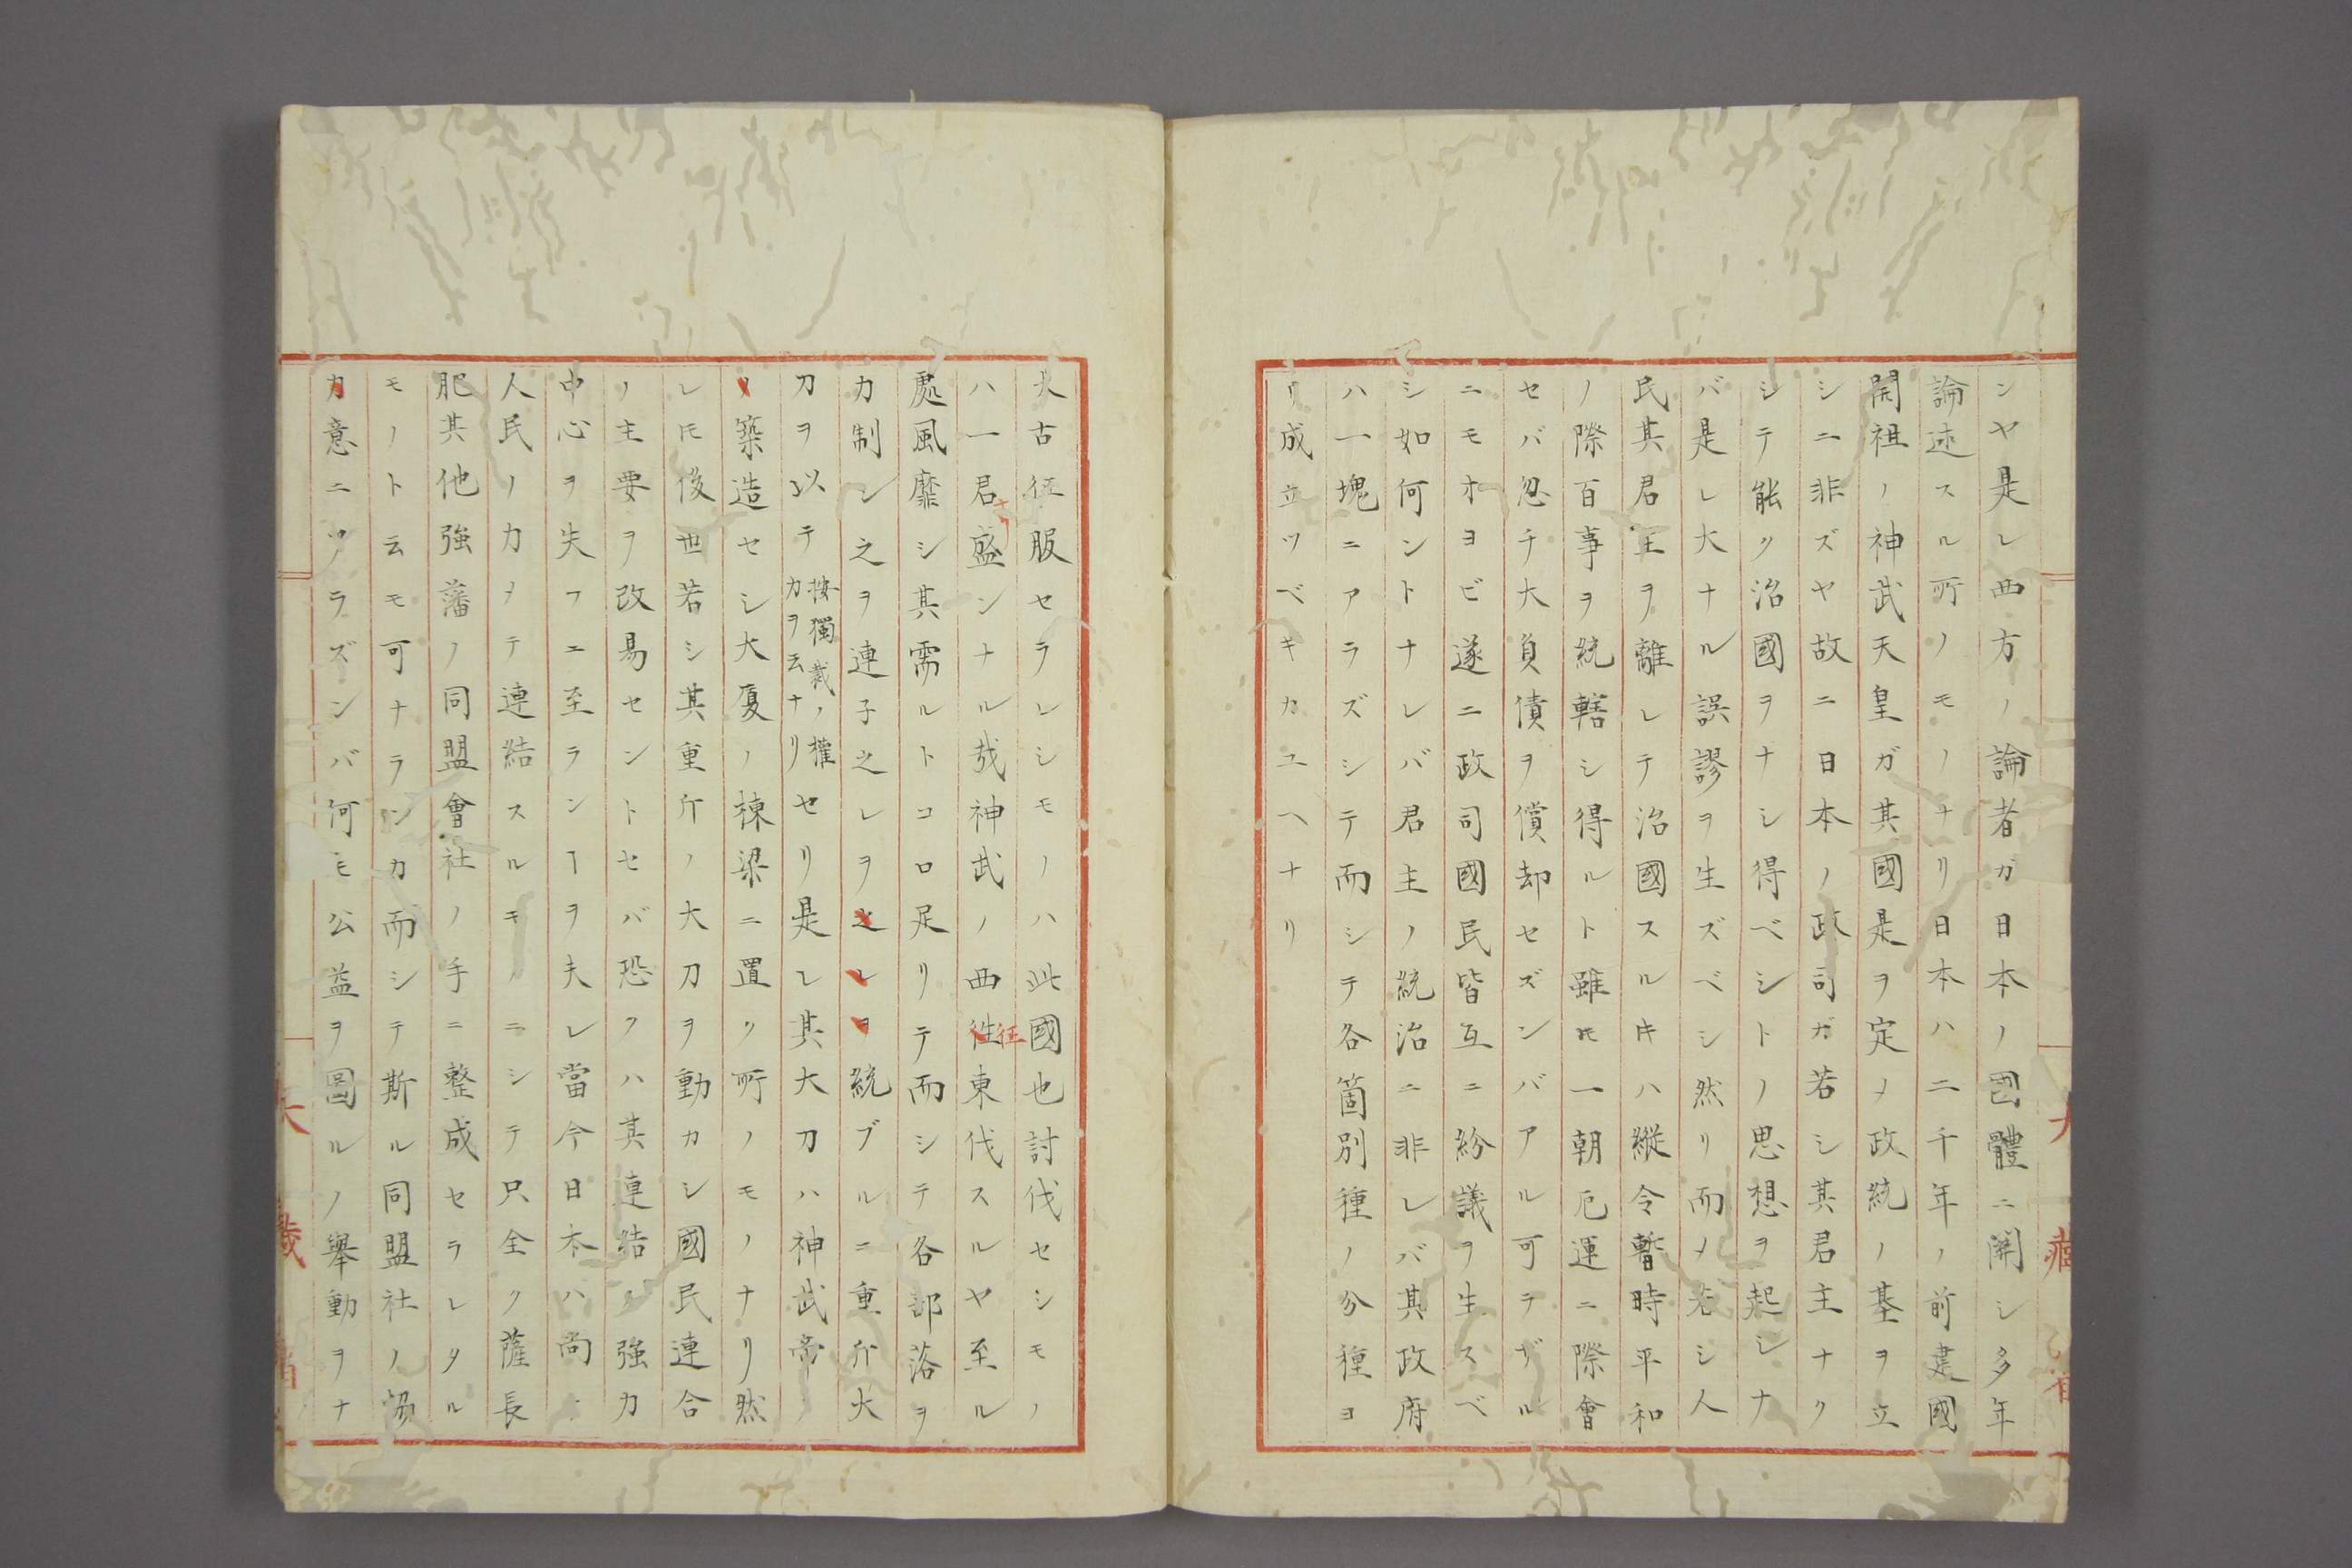 ンヤ是レ西方ノ論者ガ日本ノ國體ニ關シ多年
論述スル所ノモノナリ日本ハ二千年ノ前建國
開祖ノ神武天皇ガ其國是ヲ定メ政統ノ基ヲ立
シニ非ズヤ故ニ日本ノ政司ガ若シ其君主ナク
シテ能ク治國ヲナシ得ベシトノ思想ヲ起シナ
バ是レ大ナル誤謬ヲ生ズベシ然リ而メ若シ人
民其君主ヲ離レテ治國スルキハ縱令暫時平和
ノ際百事ヲ統轄シ得ルト雖𪜈一朝厄運ニ際會
セバ忽チ大負債ヲ償却セズンバアル可テザル
ニモオヨビ遂ニ政司國民皆互ニ紛議ヲ生スベ
シ如何ントナレバ君主ノ統治ニ非レバ其政府
ハ一塊ニアラズシテ而シテ各箇別種ノ分種ヨ
リ成立ツベキカユヘナリ
大古征服セラレシモノハ此國也討伐セシモノ
ハ一君盛ンナル哉神武ノ西征東伐スルヤ至ル
征
處風靡シ其需ルトコロ足リテ而シテ各部落ヲ
カ制シ之ヲ連子之レヲ之レヲ統ブルニ重斤大
刀ヲ以テ按獨裁ノ權力ヲ云ナリセリ是レ其大刀ハ神武帝
ノ築造セシ大厦ノ棟梁ニ置ク所ノモノナリ然
レ𪜈後世若シ其重斤ノ大刀ヲ動カシ國民連合
ノ主要ヲ改易セントセバ恐クハ其連結ノ強力
中心ヲ失フニ至ランヿヲ夫レ當今日本ハ尚
人民ノ力メテ連結スルモノニシテ只全ク薩長
肥其他強藩ノ同盟會社ノ手ニ整成セラレタル
モノト云モ可ナランカ而シテ斯ル同盟社ノ協
力意ニアラズンバ何モ公益ヲ圖ルノ擧動ヲナ
大藏省
大藏省